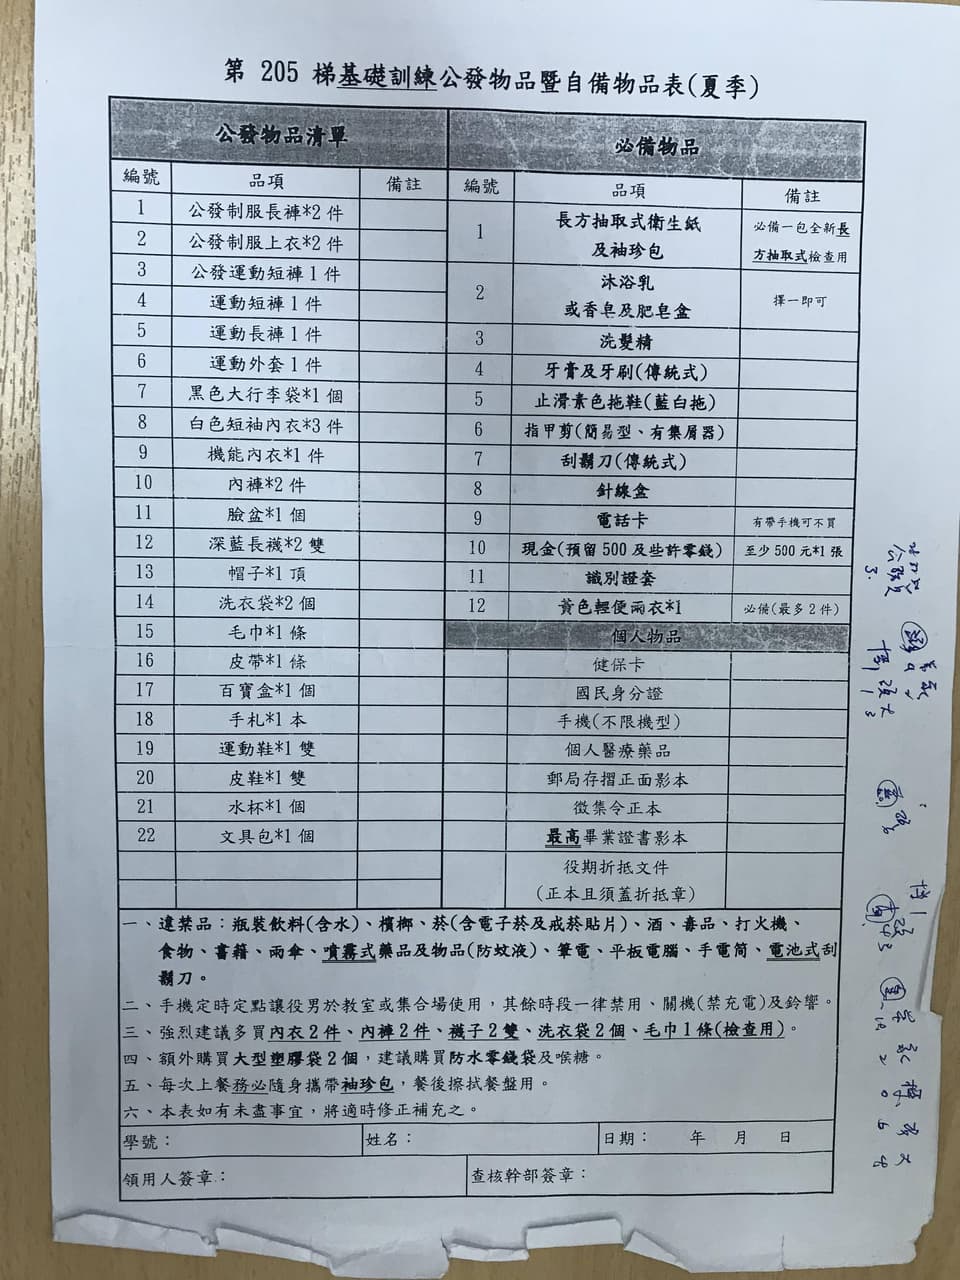 第 205 梯基礎訓練公發物品暨自備物品表(夏季)
公發物品清單 必備物品
編號 品項 備註 編號 品項 備註
1 公發制服長褲*2 件
2 公發制服上衣*2 件
3 公發運動短褲 1 件
4 運動短褲 1 件
5 運動長褲 1 件
6 運動外套 1 件
7 黑色大行李袋*1 個
8 白色短袖內衣*3 件
9 機能內衣*1 件
10 內褲*2 件
11 臉盆*1 個
12 深藍長襪*2 雙
13 帽子*1 頂
14 洗衣袋*2 個
15 毛巾*1 條
16 皮帶*1 條
17 百寶盒*1 個
18 手札*1 本
19 運動鞋*1 雙
20 皮鞋*1 雙
21 水杯*1 個
22 文具包*1 個
1 長方抽取式衛生紙
及袖珍包
必備一包全新長
方抽取式檢查用
2 沐浴乳
或香皂及肥皂盒
擇一即可
3 洗髮精
4 牙膏及牙刷(傳統式)
5 止滑素色拖鞋(藍白拖)
6 指甲剪(簡易型、有集屑器)
7 刮鬍刀(傳統式)
8 針線盒
9 電話卡 有帶手機可不買
10 現金(預留 500 及些許零錢) 至少 500 元*1 張
11 識別證套
12 黃色輕便雨衣*1 必備(最多 2 件)
個人物品
健保卡
國民身分證
手機(不限機型)
個人醫療藥品
郵局存摺正面影本
徵集令正本
最高畢業證書影本
役期折抵文件
(正本且須蓋折抵章)
一、違禁品：瓶裝飲料(含水)、檳榔、菸(含電子菸及戒菸貼片)、酒、毒品、打火機、
食物、書籍、雨傘、噴霧式藥品及物品(防蚊液)、筆電、平板電腦、手電筒、電池式刮
鬍刀。
二、手機定時定點讓役男於教室或集合場使用，其餘時段一律禁用、關機(禁充電)及鈴響。
三、強烈建議多買內衣 2 件、內褲 2 件、襪子 2 雙、洗衣袋 2 個、毛巾 1 條(檢查用)。
四、額外購買大型塑膠袋 2 個，建議購買防水零錢袋及喉糖。
五、每次上餐務必隨身攜帶袖珍包，餐後擦拭餐盤用。
六、本表如有未盡事宜，將適時修正補充之。
學號： 姓名： 日期： 年 月 日
領用人簽章： 查核幹部簽章：